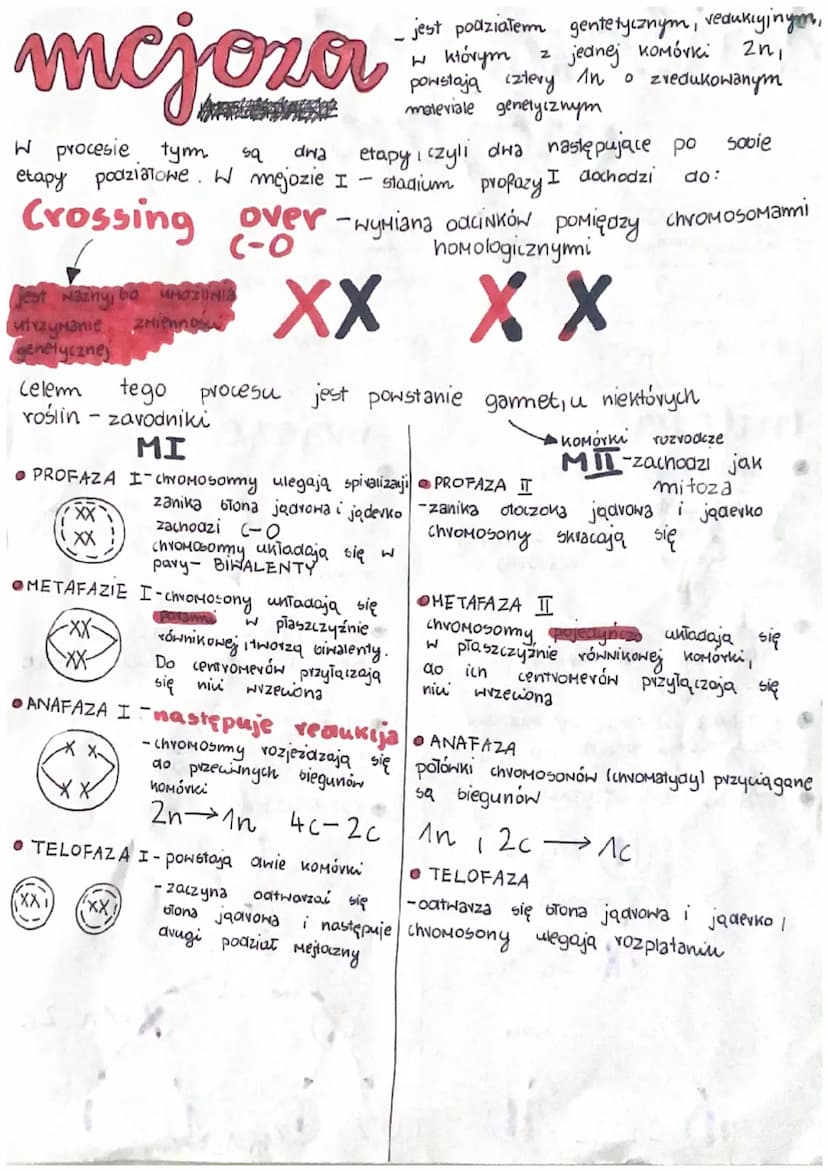 mejoza
- jest podziałem gentetycznym, redukcyjnym,
w którym z jednej komórki 2n,
powstają cztery 1n o zredukowanym
materiale genetycznym
W procesie tym są dwa etapy, czyli dwa następujące po sobie
etapy podziałowe. W mejozie I - stadium profazy I dochodzi do:
Crossing over - wymiana odcinków pomiędzy chromosomami
C-O homologicznymi
jest ważny, bo umożliwia
utrzymanie zmienności
genetycznej
XX XX
Celem tego procesu jest powstanie gamet, u niektórych
roślin - zarodniki
komórki rozrodcze
MI
• PROFAZA I - chromosomy ulegają spiralizacji
zanika błona jądrowa i jąderko
zachodzi C-O
chromosomy układają się w
pary - BIWALENTY
XX
XX
• METAFAZIE I - chromosony układają się
parami w płaszczyźnie
równikowej, tworzą biwalenty.
Do centromerów przyłączają
się nici wrzeciona
XX
XX
• ANAFAZA I - następuje redukcja
- chromosmy rozjeżdzają się
do przeciwnych biegunów
komórki
2n → 1n 4c - 2c
X X
X X
• TELOFAZA I - powstają dwie komórki
- zaczyna odtwarzać się
błona jądrowa i następuje
drugi podział mejotyczny
XX
XX
MII - zachodzi jak
mitoza
• PROFAZA II
- zanika otoczoka jądrowa i jąderko
chromosony skracają się
• METAFAZA II
chromosomy pojedyńczo układają się
w płaszczyźnie równikowej komórki,
do ich centromerów przyłączają się
nici wrzeciona
• ANAFAZA
połówki chromosonów (chromatydy) przyciągane
są biegunów
1n, 2c → 1c
• TELOFAZA
- odtwarza się błona jądrowa i jąderko,
chromosony ulegają rozplataniu